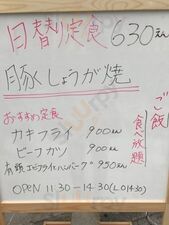 日替り定食 630えん
豚しょうが焼
ご飯
食べ放題
おすすめ定食
カキフライ 900えん
ビーフカツ 900えん
有頭エビフライとハンバーグ 950えん
OPEN 11:30-14:30(LO14:30)